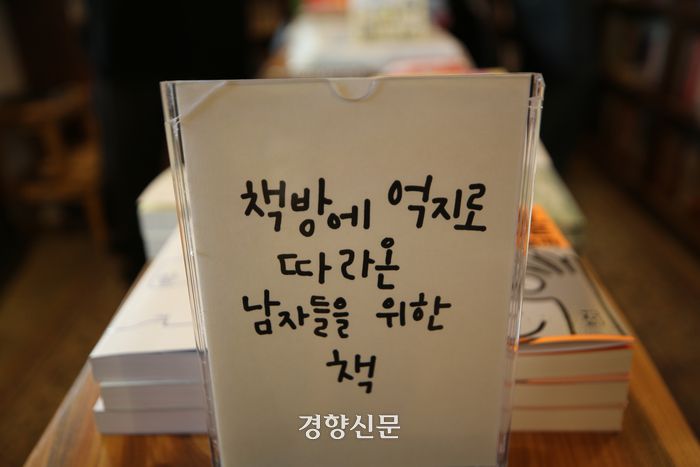 책방에 억지로
따라온
남자들을 위한
책
경향신문